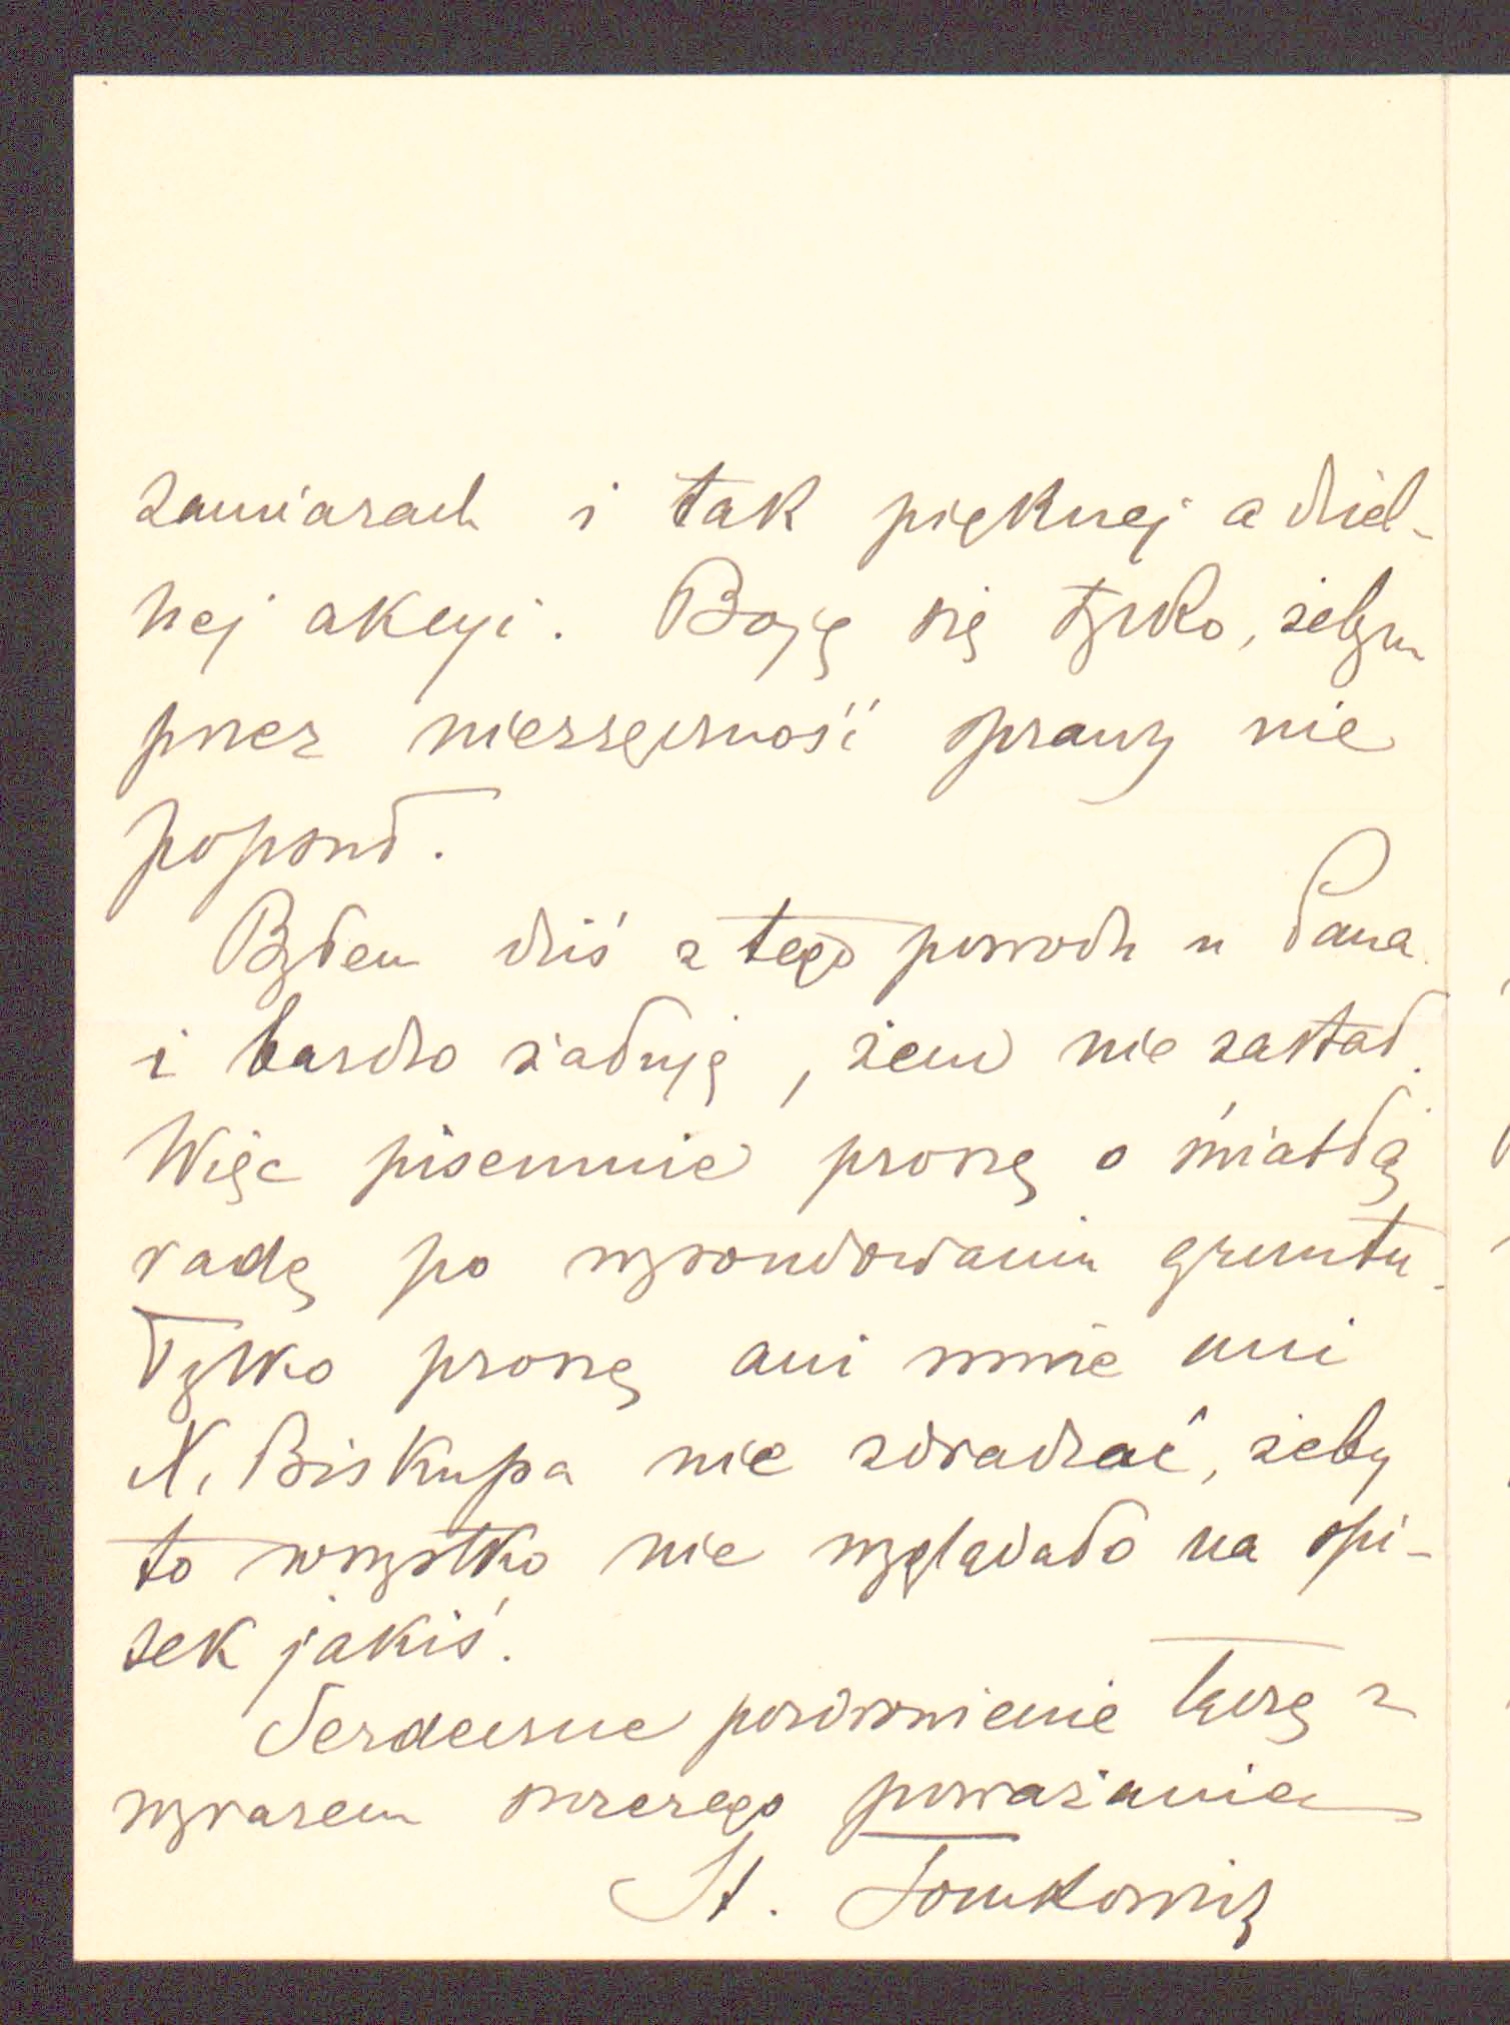 zamiarach i tak pięknej a dziel-
nej akcyi. Boję się tylko, żebym
przez niezręczność sprawy nie
popsuł.
Byłem dziś z tego powodu u Pana
i bardzo żałuję, żem nie zastał.
Więc pisemnie proszę o światłą
radę po wysondowaniu gruntu.
Tylko proszę ani mnie ani
X. Biskupa nie zdradzać, żeby
to wszystko nie wyglądało na spi-
sek jakiś.
Serdeczne pozdrowienie łączę z
wyrazem szczerego poważania
St. Tomkowicz